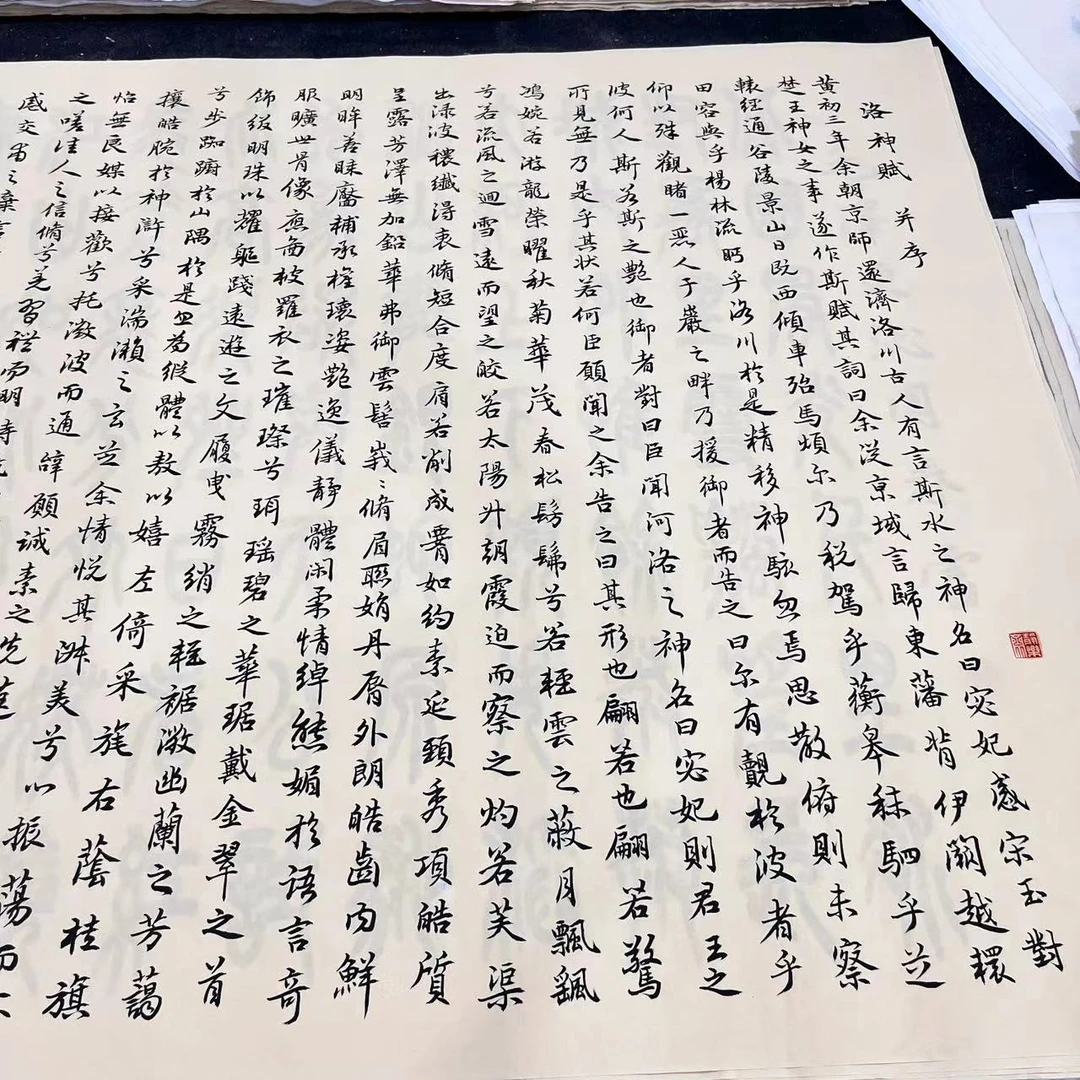 洛神賦 并序
黄初三年余朝京師還濟洛川古人有言斯水之神名曰宓妃感宋玉對
楚王神女之事遂作斯賦其詞曰余從京域言歸東藩背伊闕越轘
轅經通谷陵景山日既西傾車殆馬煩尔乃税駕乎蘅皋秣駟乎芝
田容與乎楊林流眄乎洛川於是精移神駭忽焉思散俯則未察
仰以殊觀睹一麗人于巖之畔乃援御者而告之曰尔有覿於彼者乎
彼何人斯若斯之艷也御者對曰臣聞河洛之神名曰宓妃則君王之
所見無乃是乎其狀若何臣願聞之余告之曰其形也翩若也翩若驚
鴻婉若游龍榮曜秋菊華茂春松髣髴兮若輕雲之蔽月飄飖
兮若流風之迴雪遠而望之皎若太陽升朝霞迫而察之灼若芙渠
出渌波穠纖得衷脩短合度肩若削成腰如約素延頸秀項皓質
呈露芳澤無加鉛華弗御雲髻峩々脩眉聯娟丹脣外朗皓齒内鮮
明眸善睞靨輔承權瓌姿艷逸儀靜體闲柔情綽態媚於語言奇
服曠世骨像應圖披羅衣之璀璨兮珥瑶碧之華琚戴金翠之首
飾綴明珠以耀軀踐遠遊之文履曳霧綃之輕裾微幽蘭之芳藹
兮步踟躕於山隅於是忽焉縱體以敖以嬉左倚采旄右蔭桂旗
攘皓腕於神滸兮采湍瀨之玄芝余情悦其淑美兮心振蕩而不
怡無良媒以接歡兮托微波而通辞願誠素之先達
之嗟佳人之信脩兮羌習禮而明詩
感交甫之棄言